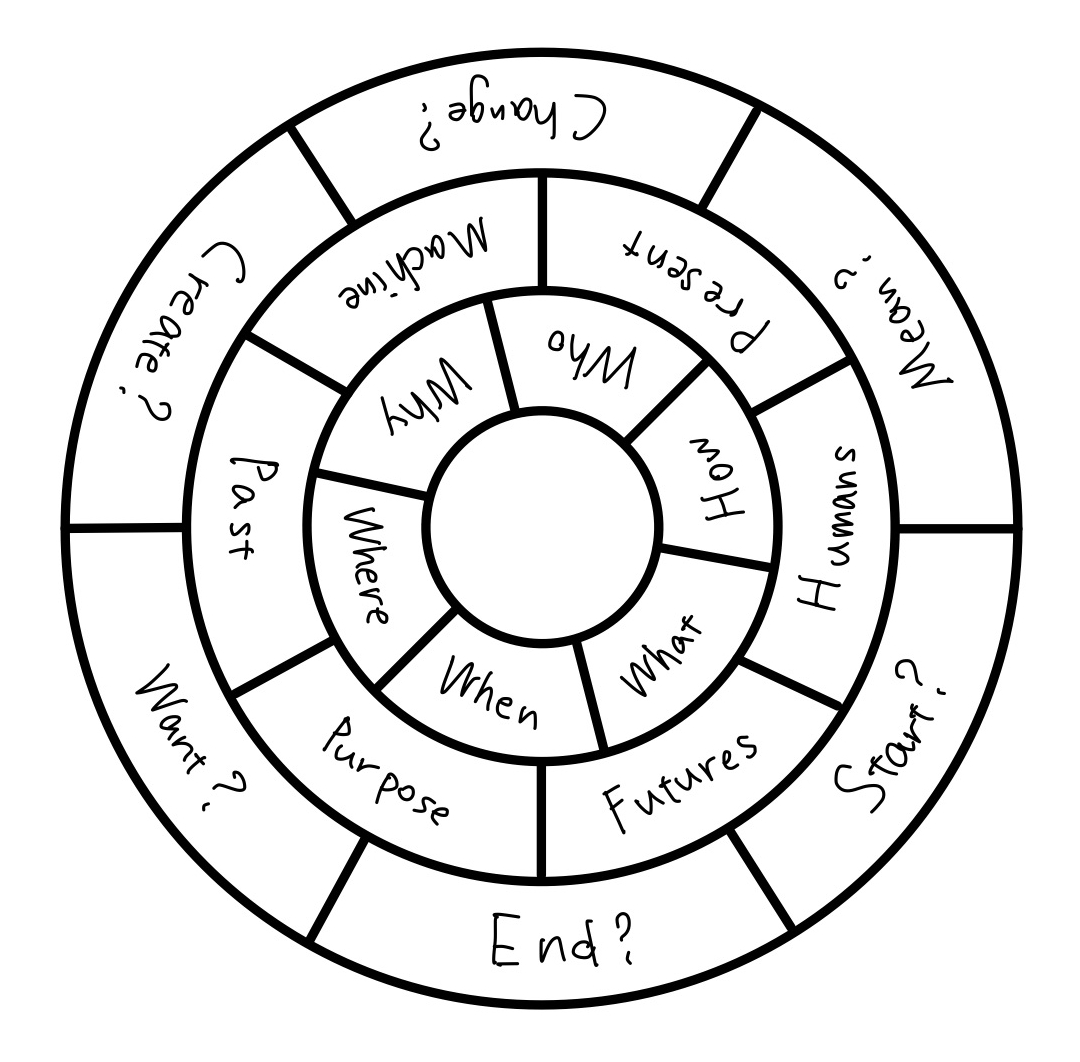 Change?
Mean?
Start?
End?
Want?
Create?
Machine
Present
Humans
Futures
Purpose
Past
Why
Who
How
What
When
Where